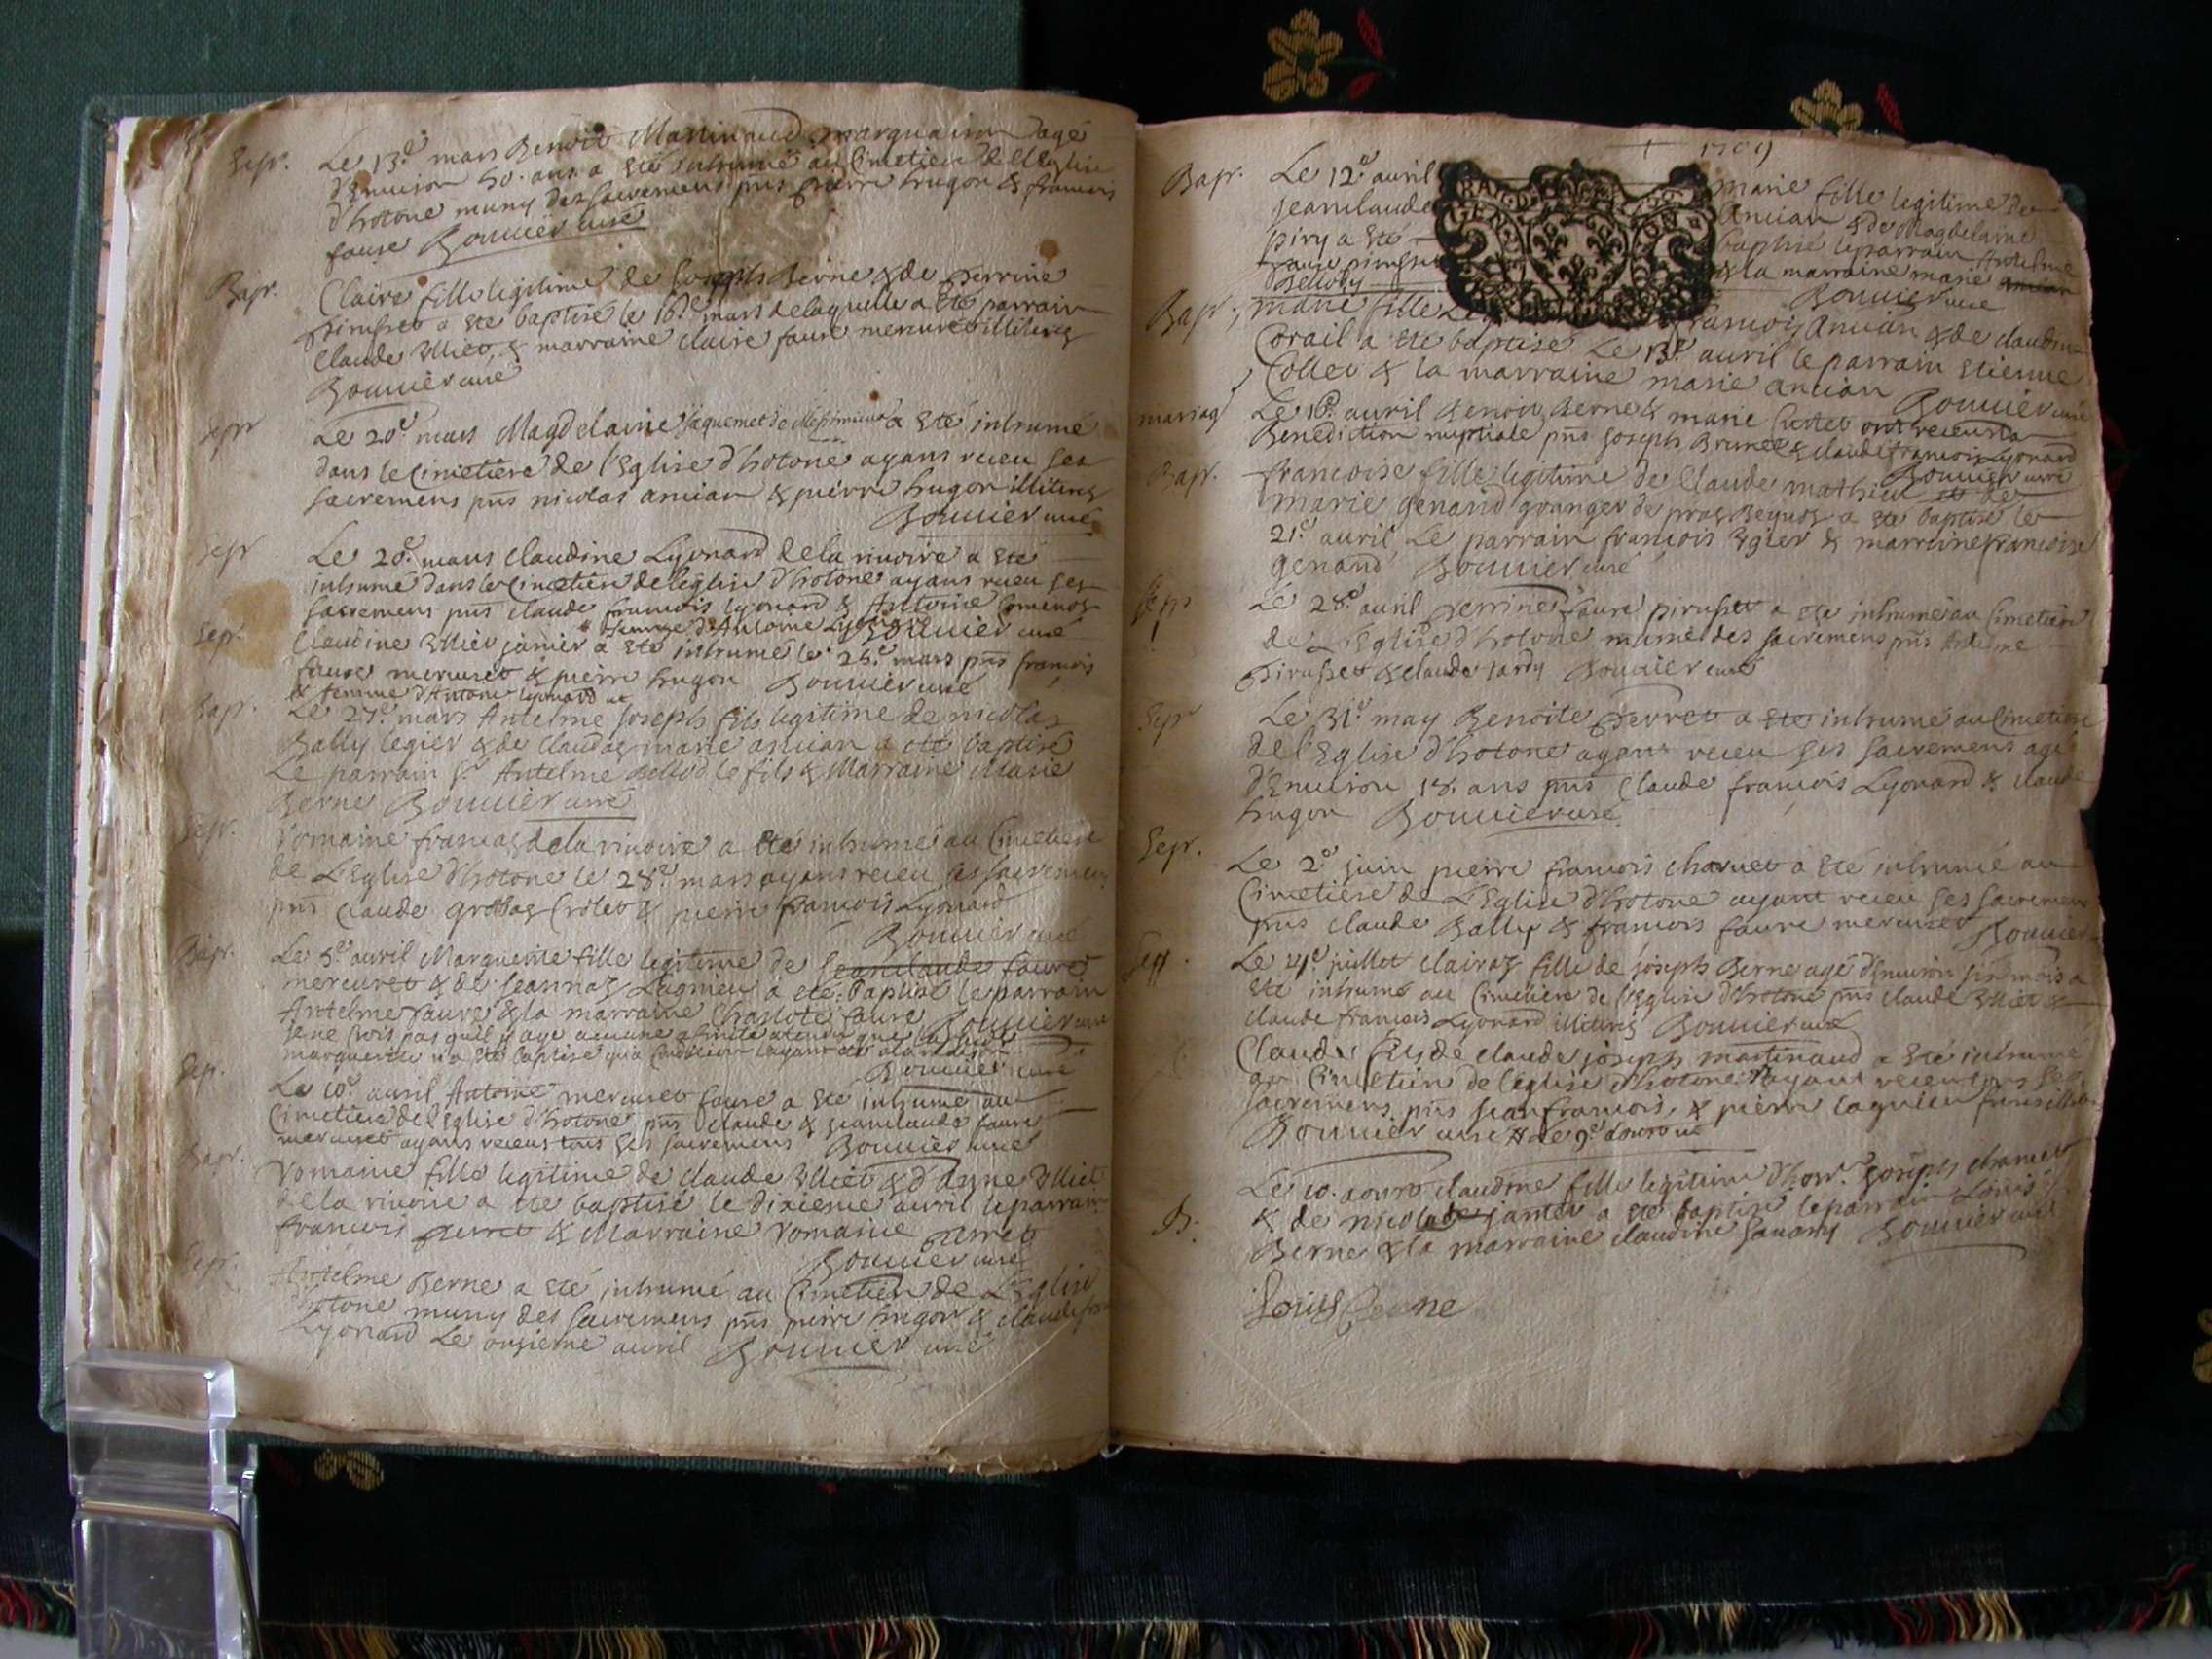 Sepr. Le 13.e mars Benoit Martinaud marquairon agé
d'Enuiron 50. ans a Eté inhumé au Cimetiere de L'Eglise
d'hotone muny des sacremens pns pierre hugon & francois
faure Bouuier curé
Bapt. Claire fille legitime de Joseph Berne & de perrine
pirusset a ete baptisé le 16.e mars de laquelle a Eté parrain
Claude Milliet & marraine claire faure mercuret illiterez
Bouuier curé
sepr Le 20.e mars Magdelaine Jaquemet de a Eté inhumé
dans le Cimetiere de l'Eglise d'hotone ayans receu ses
sacremens pns nicolas ancian & pierre hugon illiterez
Bouuier curé
sepr Le 20.e mars claudine Lyonard de la riuoire a Eté
inhumé dans le Cimetiere de l'eglise d'hotone ayans receu ses
sacremens pns claude francois lyonard & Antoine
# femme d'Antoine Lyonard Bouuier curé
Sepr. Claudine janier a Eté inhumé le 26.e mars pns francois
faure mercuret & pierre hugon Bouuier curé
# femme d'Antoine lyonard
Bapt. Le 27.e mars Antelme Joseph fils legitime de nicolas
Bally legier & de claudaz marie ancian a eté baptisé
Le parrain Sr Antelme Bellod le fils & Marraine Marie
Berne Bouuier curé
Sepr. Romaine francaz de la riuoire a Eté inhumé au Cimetiere
de L'Eglise d'hotone le 28.e mars ayans receu ses sacremens
pns Claude Crolet & pierre francois Lyonard
Bouuier curé
Bapt. Le 5.e auril Marguerite fille legitime de Jeanclaude faure
mercuret & de Jeannaz Lagnieu a eté baptisé le parrain
Antelme faure & la marraine Charlote faure Bouuier curé
je ne crois pas qu'il y aye aucune afinité
marguerite n'a eté baptisé
Bouuier curé
Sep. Le 10.e auril Antoine mercuret faure a Eté inhumé au
Cimetiere de l'Eglise d'hotone pns claude & jeanclaude faure
mercuret ayans receus tous ses sacremens Bouuier curé
Bapt. Romaine fille legitime de claude Milliet & d'
de la riuoire a ete baptisé le dixieme auril le parrain
francois perret & Marraine Romaine perret
Bouuier curé
Sepr. Antelme Berne a eté inhumé au Cimetiere de L'Eglise
d'hotone muny des sacremens pns pierre hugon & claude fran
Lyonard Le onzieme auril Bouuier curé
+ 1709
Bapt. Le 12.e auril marie fille legitime de
jeanclaude ancian & de Magdelaine
piry a Eté baptisé le parrain Antelme
& la marraine marie
Bouuier curé
Bapt. marie fille francois ancian & de claudine
Corail a ete baptisé Le 13.e auril le parrain Etienne
Collet & la marraine marie ancian Bouuier curé
mariag Le 16.e auril Benoit Berne & marie ont receu la
Benediction nuptiale pns joseph Brunet & claude francois Lyonard
Bouuier curé
Bapt. francoise fille legitime de Claude mathieu & de
marie genand granger de a Eté baptisé le
21.e auril Le parrain francois & marraine francoise
genand Bouuier curé
sepr Le 28.e auril perrine faure pirusset a ete inhumé au Cimetiere
de L'Eglise d'hotone munie des sacremens pns Antelme
pirusset & claude jardy Bouuier curé
Sepr Le 31.e may Benoite perret a eté inhumé au Cimetiere
de l'Eglise d'hotone ayans receu ses sacremens agé
d'Enuiron 18. ans pns Claude francois Lyonard & claude
hugon Bouuier curé
Sepr. Le 2.e juin pierre francois charuet a Eté inhumé au
Cimetiere de L'Eglise d'hotone ayant receu ses sacremens
pns claude Bally & francois faure mercuret Bouuier
sepr. Le juillet clairaz fille de joseph Berne agé d'Enuiron six mois a
Eté inhumé au Cimetiere de l'Eglise d'hotone pns claude &
claude francois Lyonard illiterez Bouuier curé
Claude fils de claude joseph martinaud a Eté inhumé
au Cimetiere de l'eglise d'hotone # ayant receu ses
sacremens pns jean francois & pierre lagnieu
Bouuier curé # Le 9.e
B. Le 10. claudine fille legitime d'hon. joseph charuet
& de nicolade a eté baptisé le parrain Louis
Berne & la marraine claudine Sauary Bouuier curé
Louis Berne